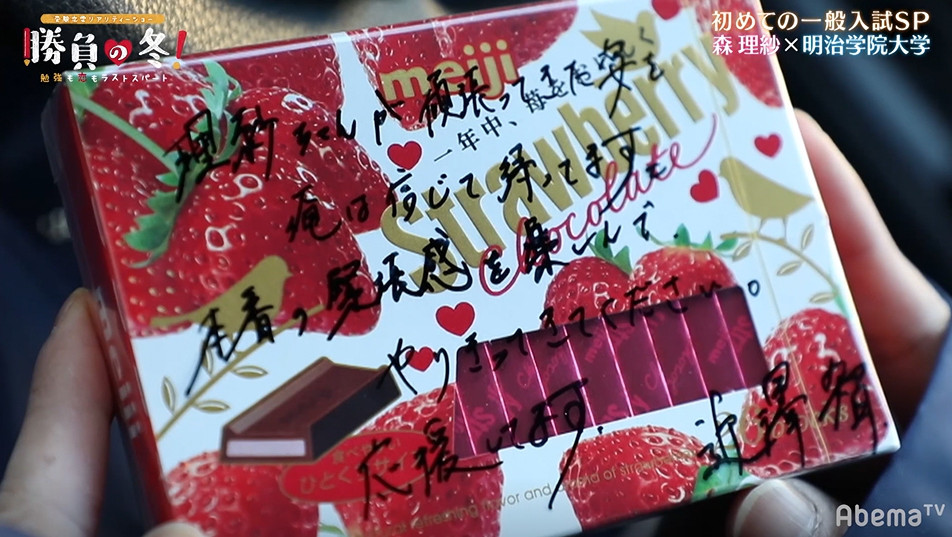 受験恋愛リアリティーショー
勝負の冬!
勉強も恋もラストスパート
初めての一般入試SP
森 理紗×明治学院大学
meiji
Strawberry
Chocolate
理紗ちゃんが頑張ってきた姿を
一年中、
俺は信じて待ってます。
本番の緊張感を楽しんで
やりきってきてください。
応援してます。
ひとくちサイズ
refreshing flavor and
of strawberry
AbemaTV